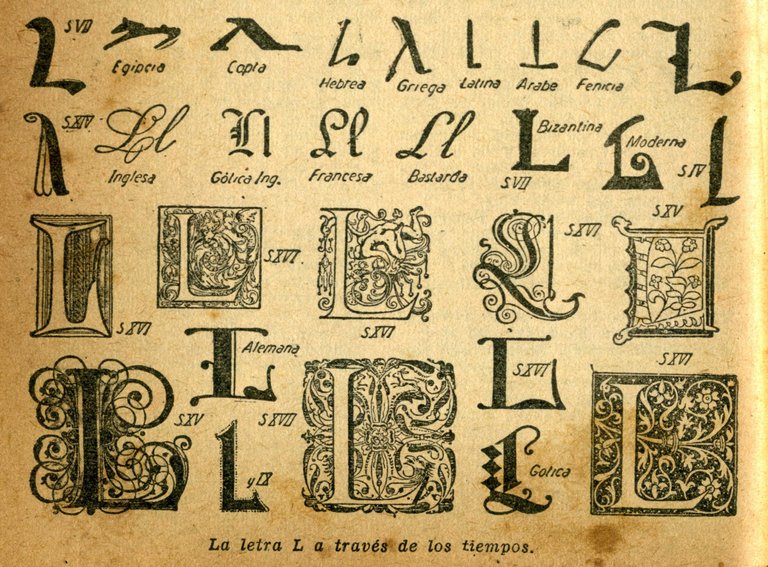 S VII
Egipcia
Copta
Hebrea
Griega
Latina
Arabe
Fenicia
S.XIV
Ll
Inglesa
Ll
Gótica Ing.
Ll
Francesa
Ll
Bastarda
L
Bizantina
S VII
L
Moderna
S IV
L
L
S XVI
L
S XVI
L
S XVI
L
S XVI
L
S XV
L
Alemana
L
S XVI
L
S XV
S XVII
L
y IX
L
L
Gotica
L
S XVI
La letra L a través de los tiempos.